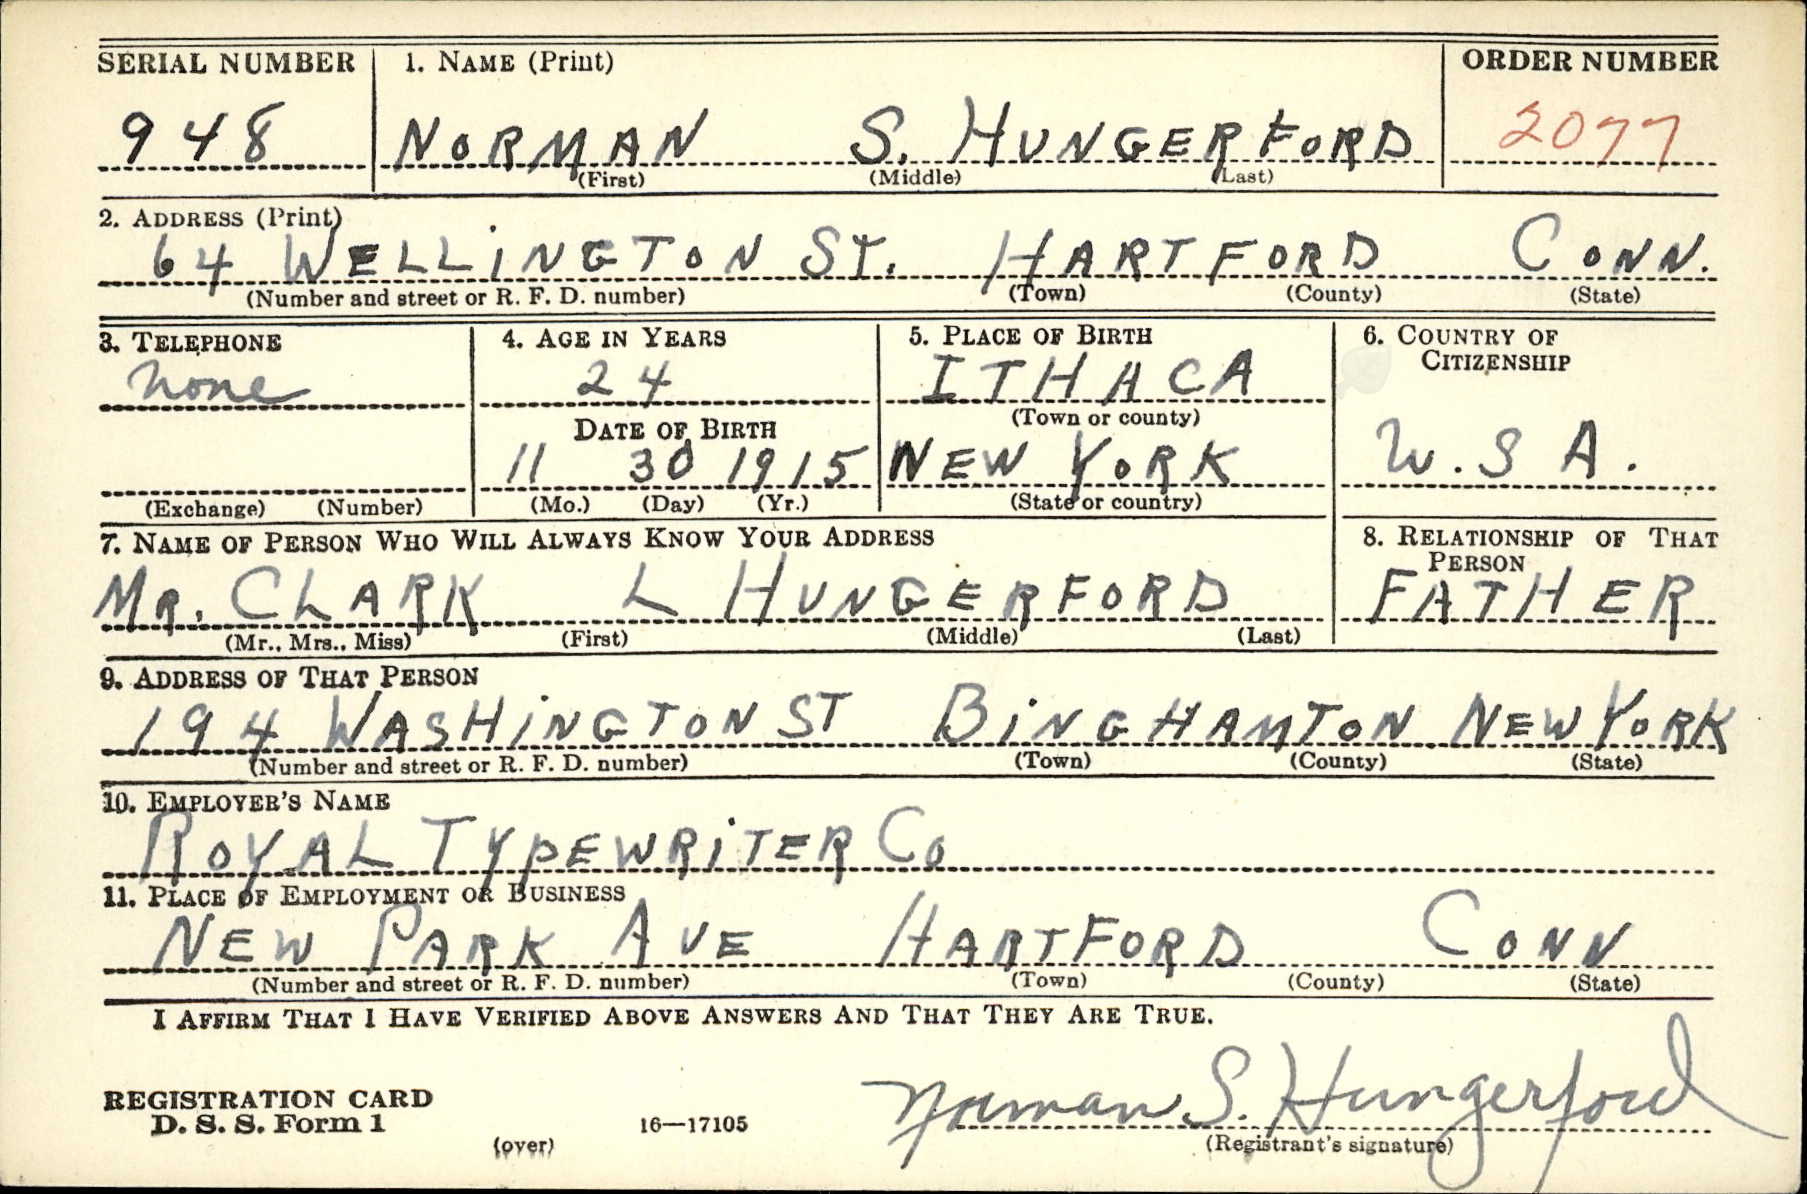 SERIAL NUMBER 1. NAME (Print) ORDER NUMBER
948 NORMAN S. HUNGERFORD 2077
(First) (Middle) (Last)
2. ADDRESS (Print)
64 WELLINGTON ST. HARTFORD CONN.
(Number and street or R. F. D. number) (Town) (County) (State)
3. TELEPHONE 4. AGE IN YEARS 5. PLACE OF BIRTH 6. COUNTRY OF
CITIZENSHIP
None 24 ITHACA
(Town or county)
DATE OF BIRTH
11 30 1915 NEW YORK U.S A.
(Exchange) (Number) (Mo.) (Day) (Yr.) (State or country)
7. NAME OF PERSON WHO WILL ALWAYS KNOW YOUR ADDRESS 8. RELATIONSHIP OF THAT
PERSON
MR. CLARK L HUNGERFORD FATHER
(Mr., Mrs., Miss) (First) (Middle) (Last)
9. ADDRESS OF THAT PERSON
194 WASHINGTON ST BINGHAMTON NEW YORK
(Number and street or R. F. D. number) (Town) (County) (State)
10. EMPLOYER'S NAME
ROYAL TYPEWRITER Co
11. PLACE OF EMPLOYMENT OR BUSINESS
NEW PARK AVE HARTFORD CONN
(Number and street or R. F. D. number) (Town) (County) (State)
I AFFIRM THAT I HAVE VERIFIED ABOVE ANSWERS AND THAT THEY ARE TRUE.
REGISTRATION CARD
D. S. S. Form 1 16—17105 Norman S. Hungerford
(over) (Registrant's signature)